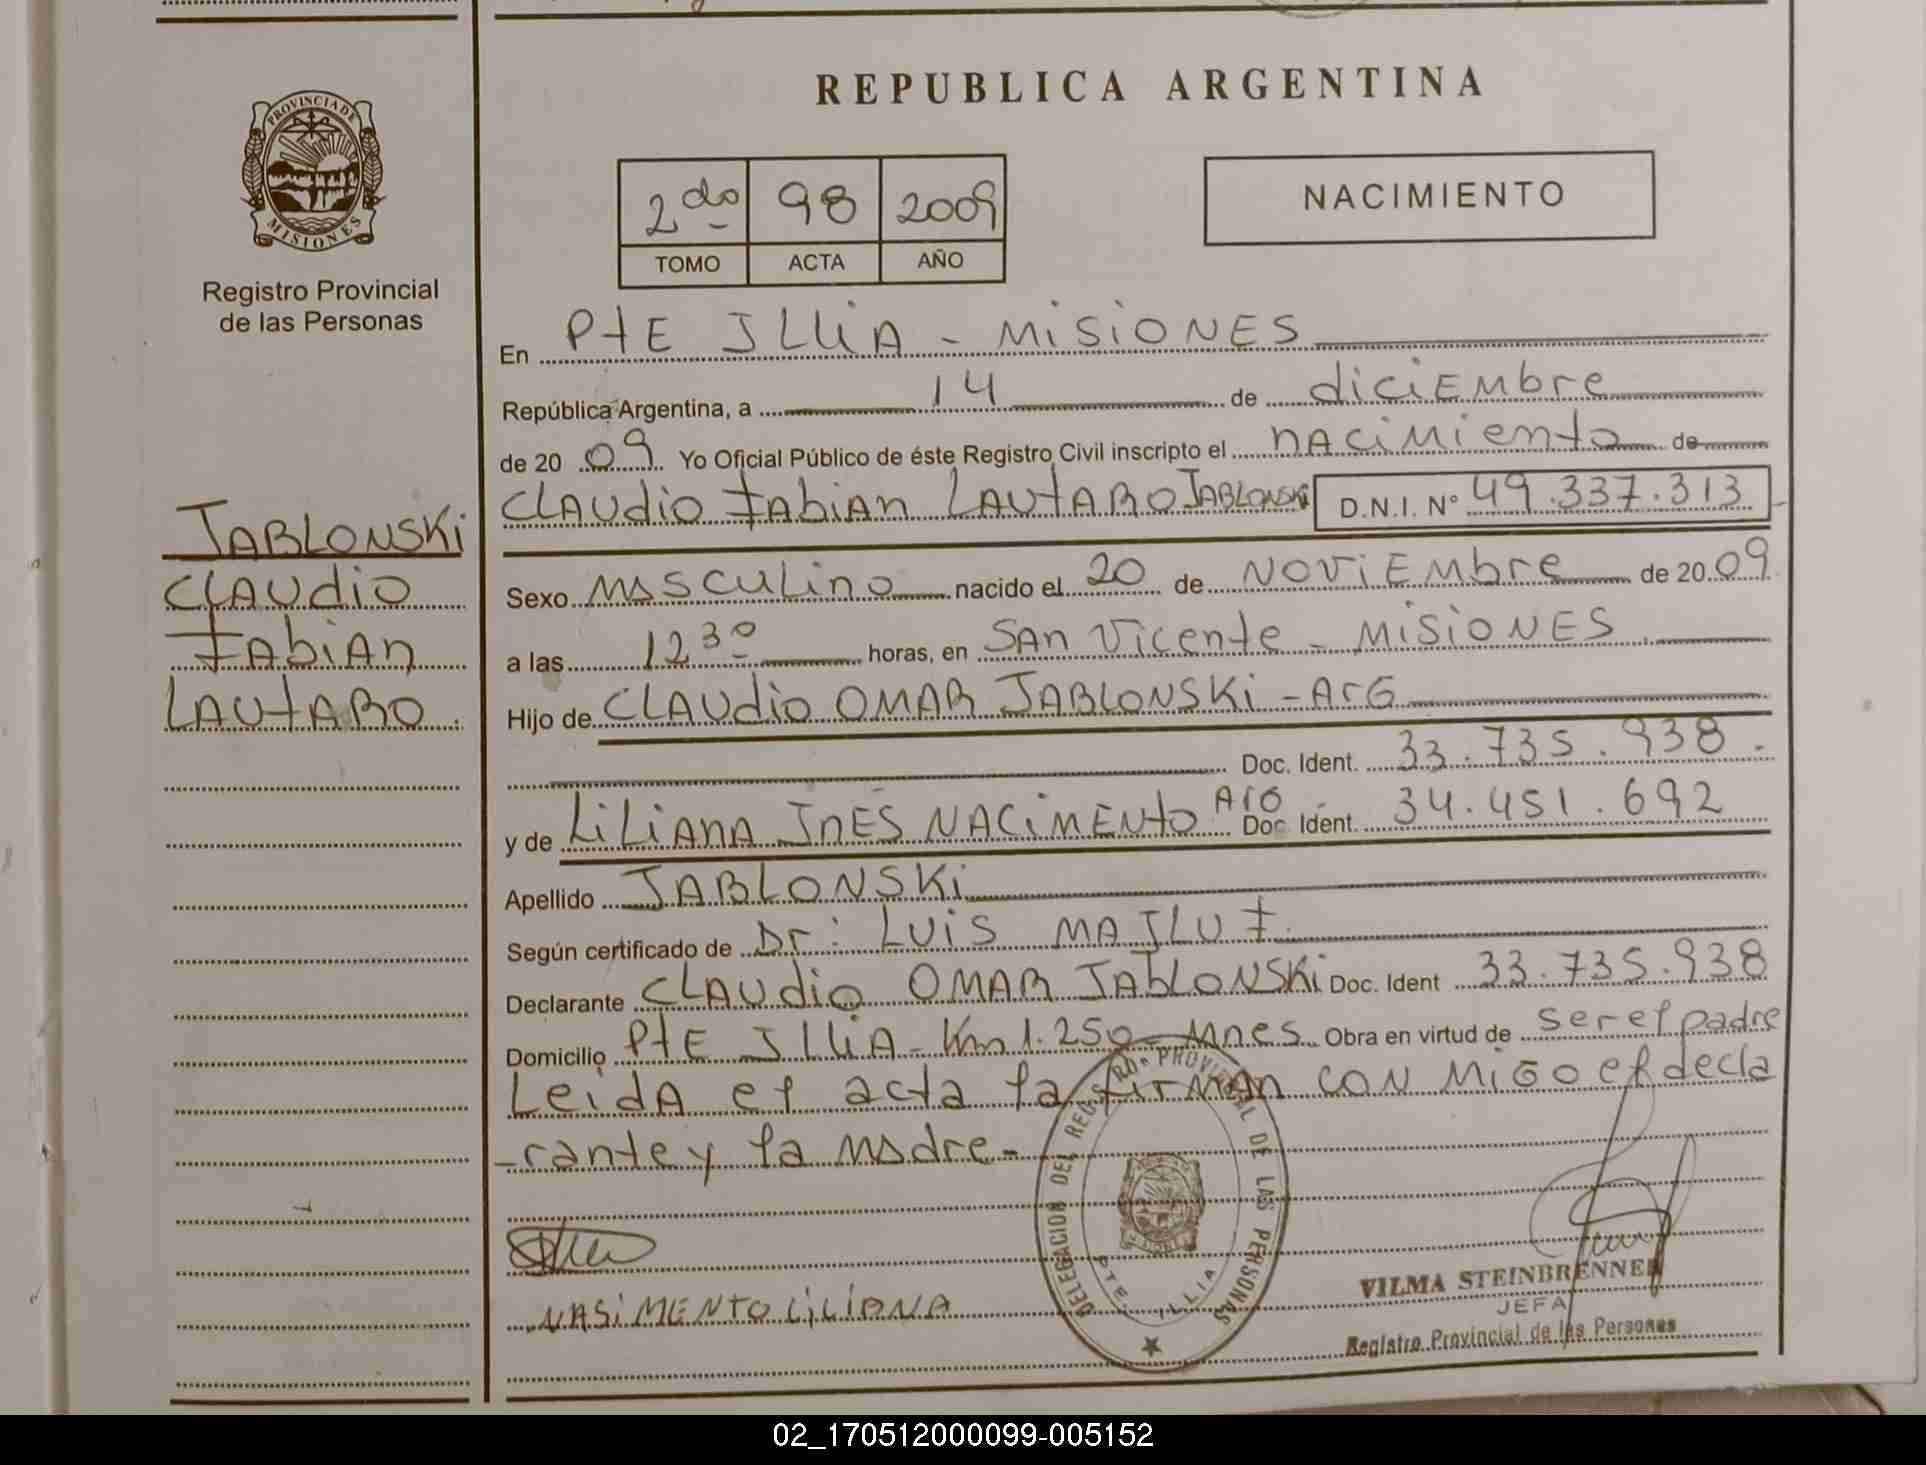 REPUBLICA ARGENTINA
PROVINCIA DE
MISIONES
Registro Provincial
de las Personas
2do 98 2009
TOMO ACTA AÑO
NACIMIENTO
En PtE JLLiA - MiSiONES
República Argentina, a 14 de diciEMbre
de 20 09 Yo Oficial Público de éste Registro Civil inscripto el nAciMiento de
CLAUdio FAbiAn LAUtARO JABLONSKi D.N.I. Nº 49.337.313
JABLONSKi
CLAUdio
FAbiAn
LAUtARO
Sexo MASCULino nacido el 20 de NOViEMbre de 20 09
a las 12 30 horas, en SAn Vicente - MiSiONES
Hijo de CLAUdio OMAR JABLONSKi - ArG
Doc. Ident. 33.735.938.
y de LiLiAnA InES NACiMENto ArG Doc Ident. 34.451.692
Apellido JABLONSKi
Según certificado de Dr: LUiS MAJLUF
Declarante CLAUdio OMAR JAbLONSKi Doc. Ident 33.735.938
Domicilio PtE JLLiA - Km 1.250 - Mnes Obra en virtud de ser el padre
LeidA el acta la firMAn CON MiGO el decla
-rante y la MAdre-
DELEGACION DEL REGISTRO PROVINCIAL DE LAS PERSONAS
PTE. ILLIA
NASiMENTO LiLiANA
VILMA STEINBRENNER
JEFA
Registro Provincial de las Personas
02_170512000099-005152